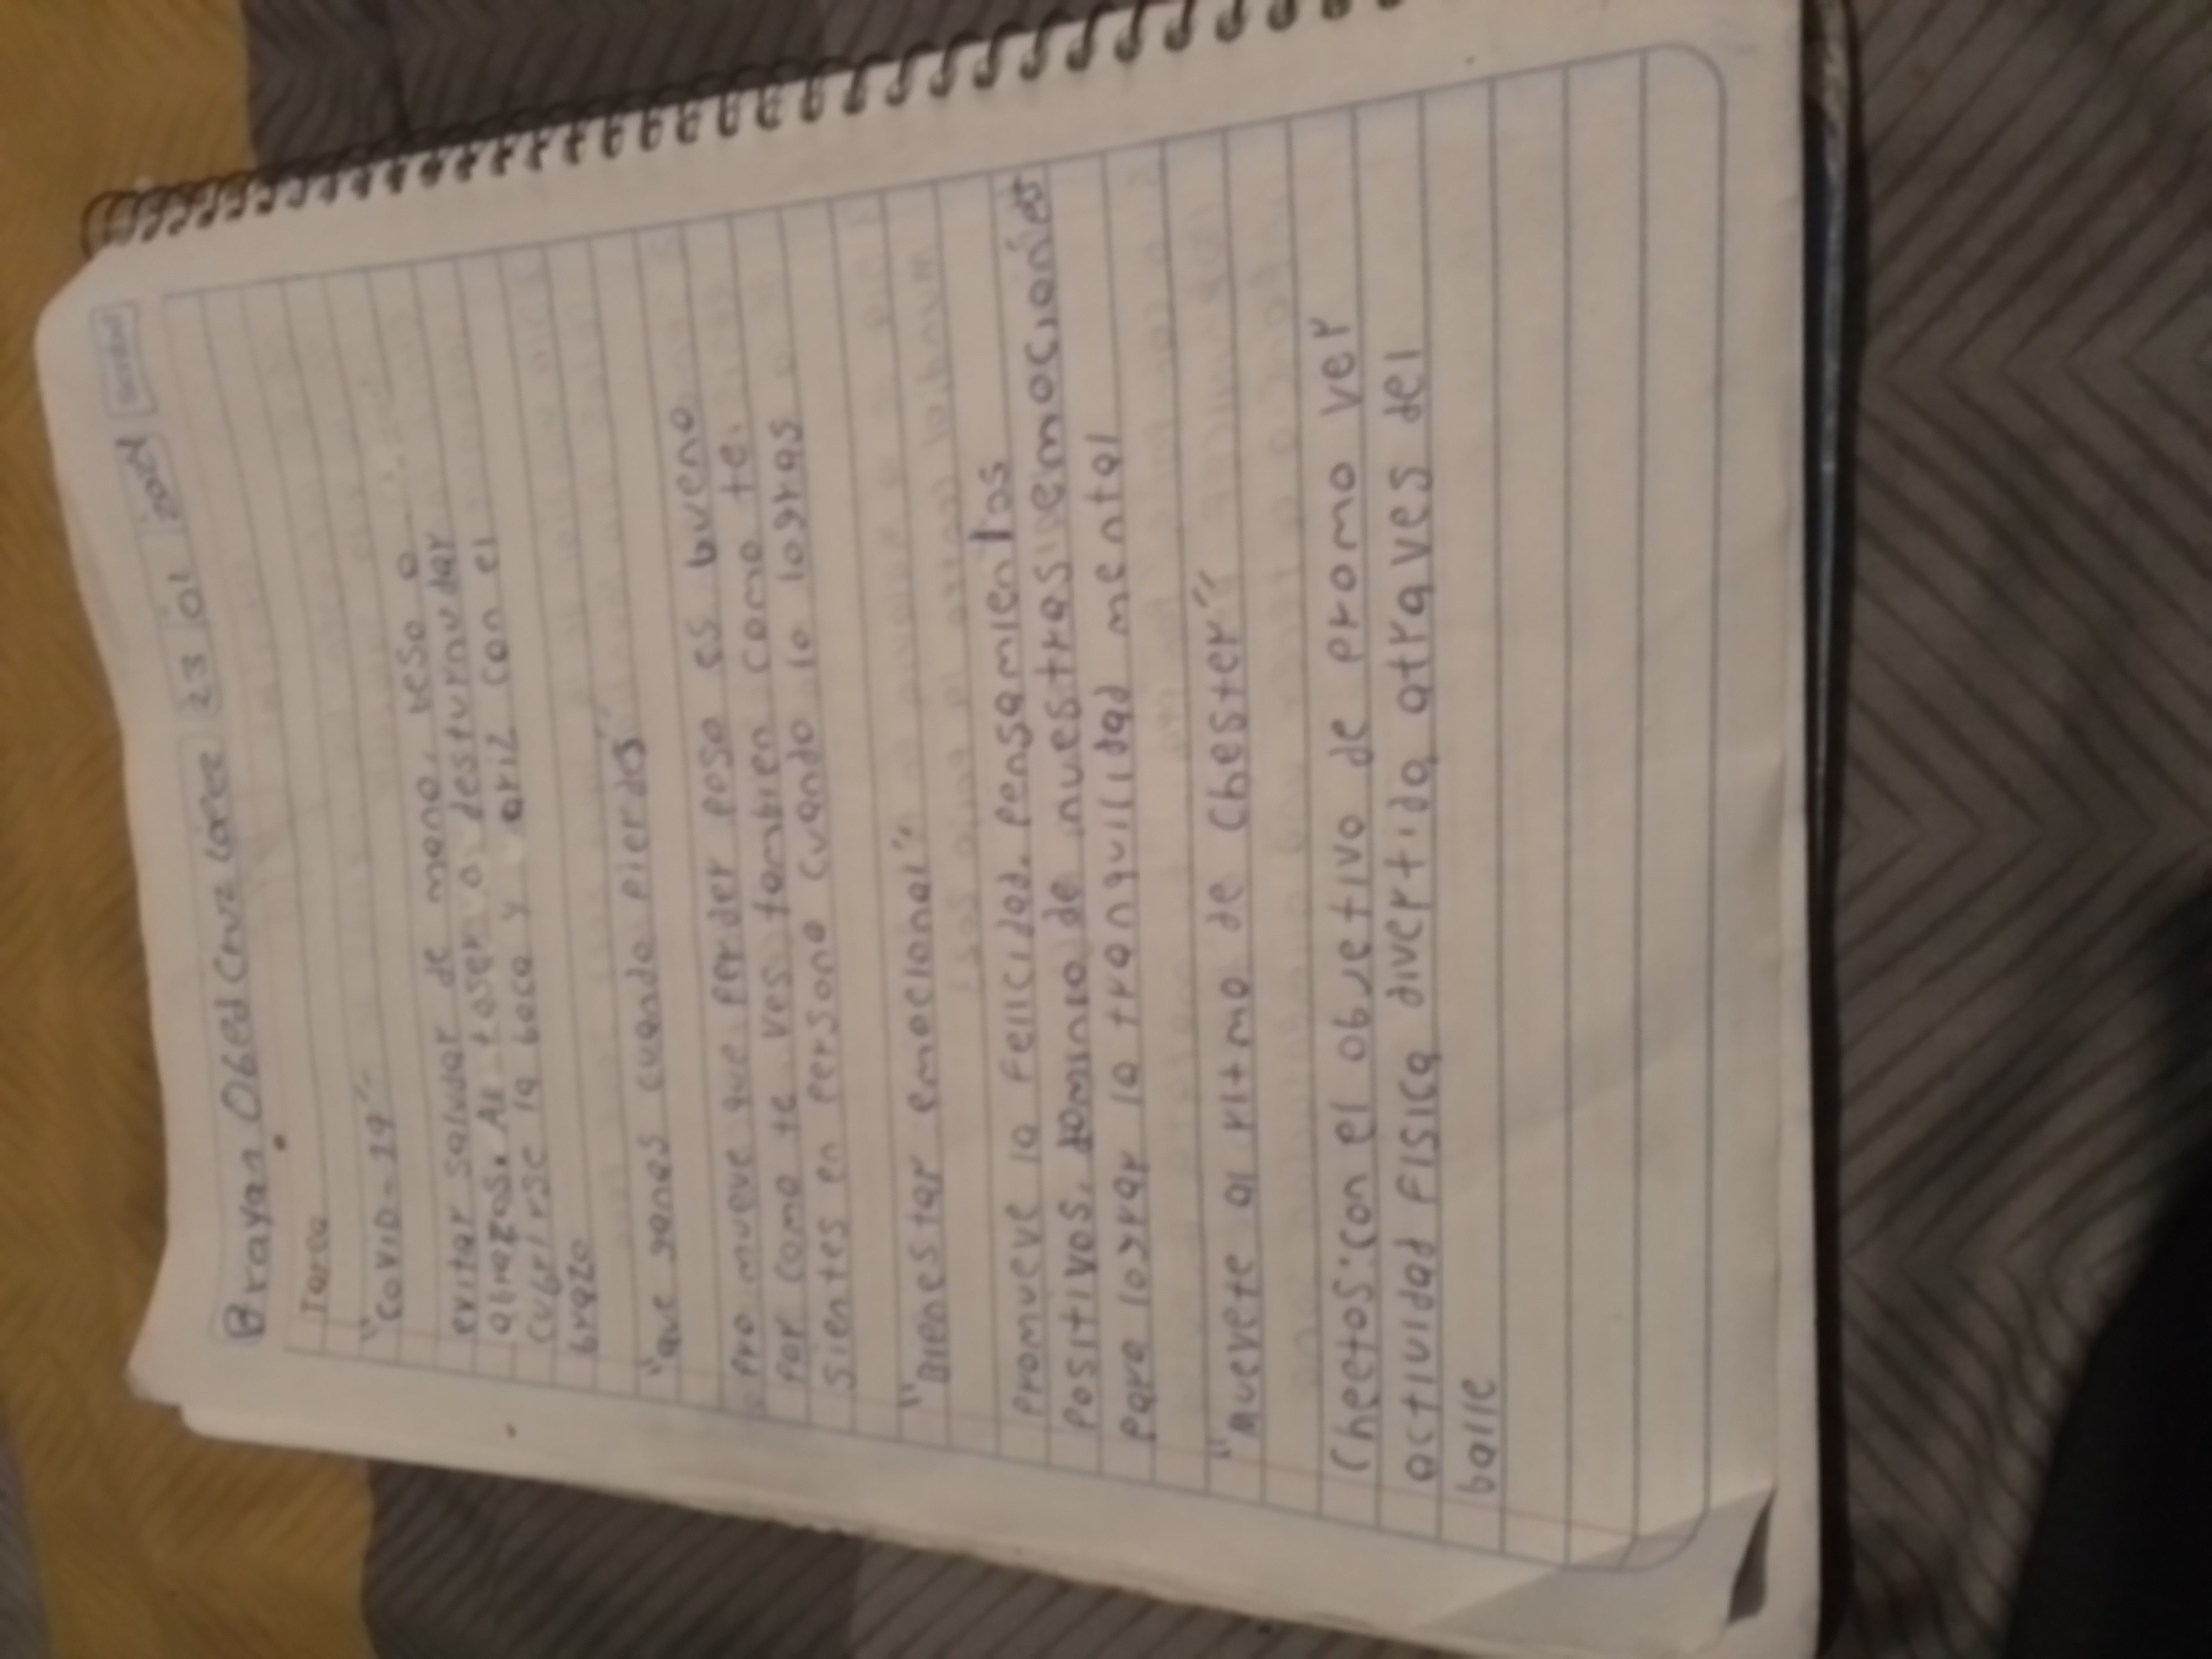 Brayan Obed Cruz López 23 01 2021
Tarea
"COVID-19"
evitar saludar de mano, beso o
abrazos. Al toser o desturnudar
cubrirse la boca y ariz con el
brazo
"que ganas cuando pierdes"
Pro mueve que perder peso es bueno
por como te ves tambien como te
sientes en persona cuando lo logras
"Bienestar emocional"
Promueve la Felicidad, pensamientos
Positivos, dominio de nuestras emociones
para lograr la tranquilidad mental
"Muevete al ritmo de Chester"
Cheetos: con el objetivo de promo ver
actividad Fisica divertida atraves del
baile